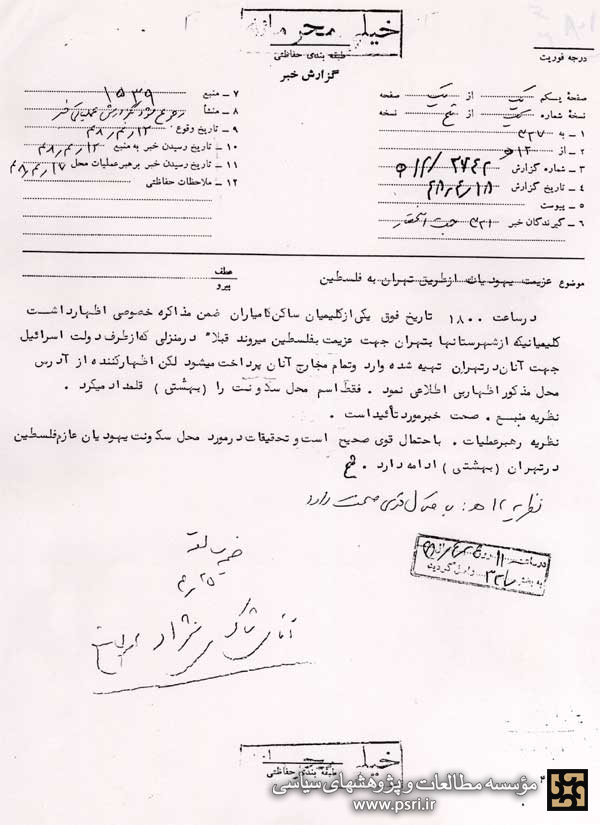 خیلی محرمانه
طبقه بندی حفاظتی
گزارش خبر
درجه فوریت
صفحه یسکم یک از یک صفحه
نسخه شماره یک از پنج نسخه
۱ – به ۳۲۷
۲ – از ۱۲ ه
۳ – شماره گزارش
۴ – تاریخ گزارش ۴۸٫۴٫۱۸
۵ – پیوست
۶ – گیرندگان خبر ۳۲۱ جهت استحضار
۷ – منبع ۱۵۳۹
۸ – منشأ
۹ – تاریخ وقوع ۴۸٫۴٫۱۲
۱۰ – تاریخ رسیدن خبر به منبع ۴۸٫۴٫۱۲
۱۱ – تاریخ رسیدن خبر برهبر عملیات محل ۴۸٫۴٫۱۷
۱۲ – ملاحظات حفاظتی
موضوع عزیمت یهودیان ازطریق تهران به فلسطین
عطف
پیرو
درساعت ۱۸۰۰ تاریخ فوق یکی ازکلیمیان ساکن کامیاران ضمن مذاکره خصوصی اظهارداشت
کلیمیانیکه ازشهرستانها بتهران جهت عزیمت بفلسطین میروند قبلاً درمنزلی که ازطرف دولت اسرائیل
جهت آنان درتهران تهیه شده وارد وتمام مخارج آنان پرداخت میشود لکن اظهارکننده از آدرس
محل مذکور اظهاربی اطلاعی نمود . فقط اسم محل سکونت را (بهشتی) قلمداد میکرد .
نظریه منبع . صحت خبرمورد تأئید است .
نظریه رهبرعملیات . باحتمال قوی صحیح است وتحقیقات درمورد محل سکونت یهودیان عازم فلسطین
درتهران (بهشتی) ادامه دارد .
نظریه ۱۲ ه : به احتمال قوی صحت دارد
درساعت ۱۱ روز
به بخش ۳۲۱ واصل گردید
آقای
خیلی محرمانه
طبقه بندی حفاظتی
مؤسسه مطالعات و پژوهشهای سیاسی
www.psri.ir